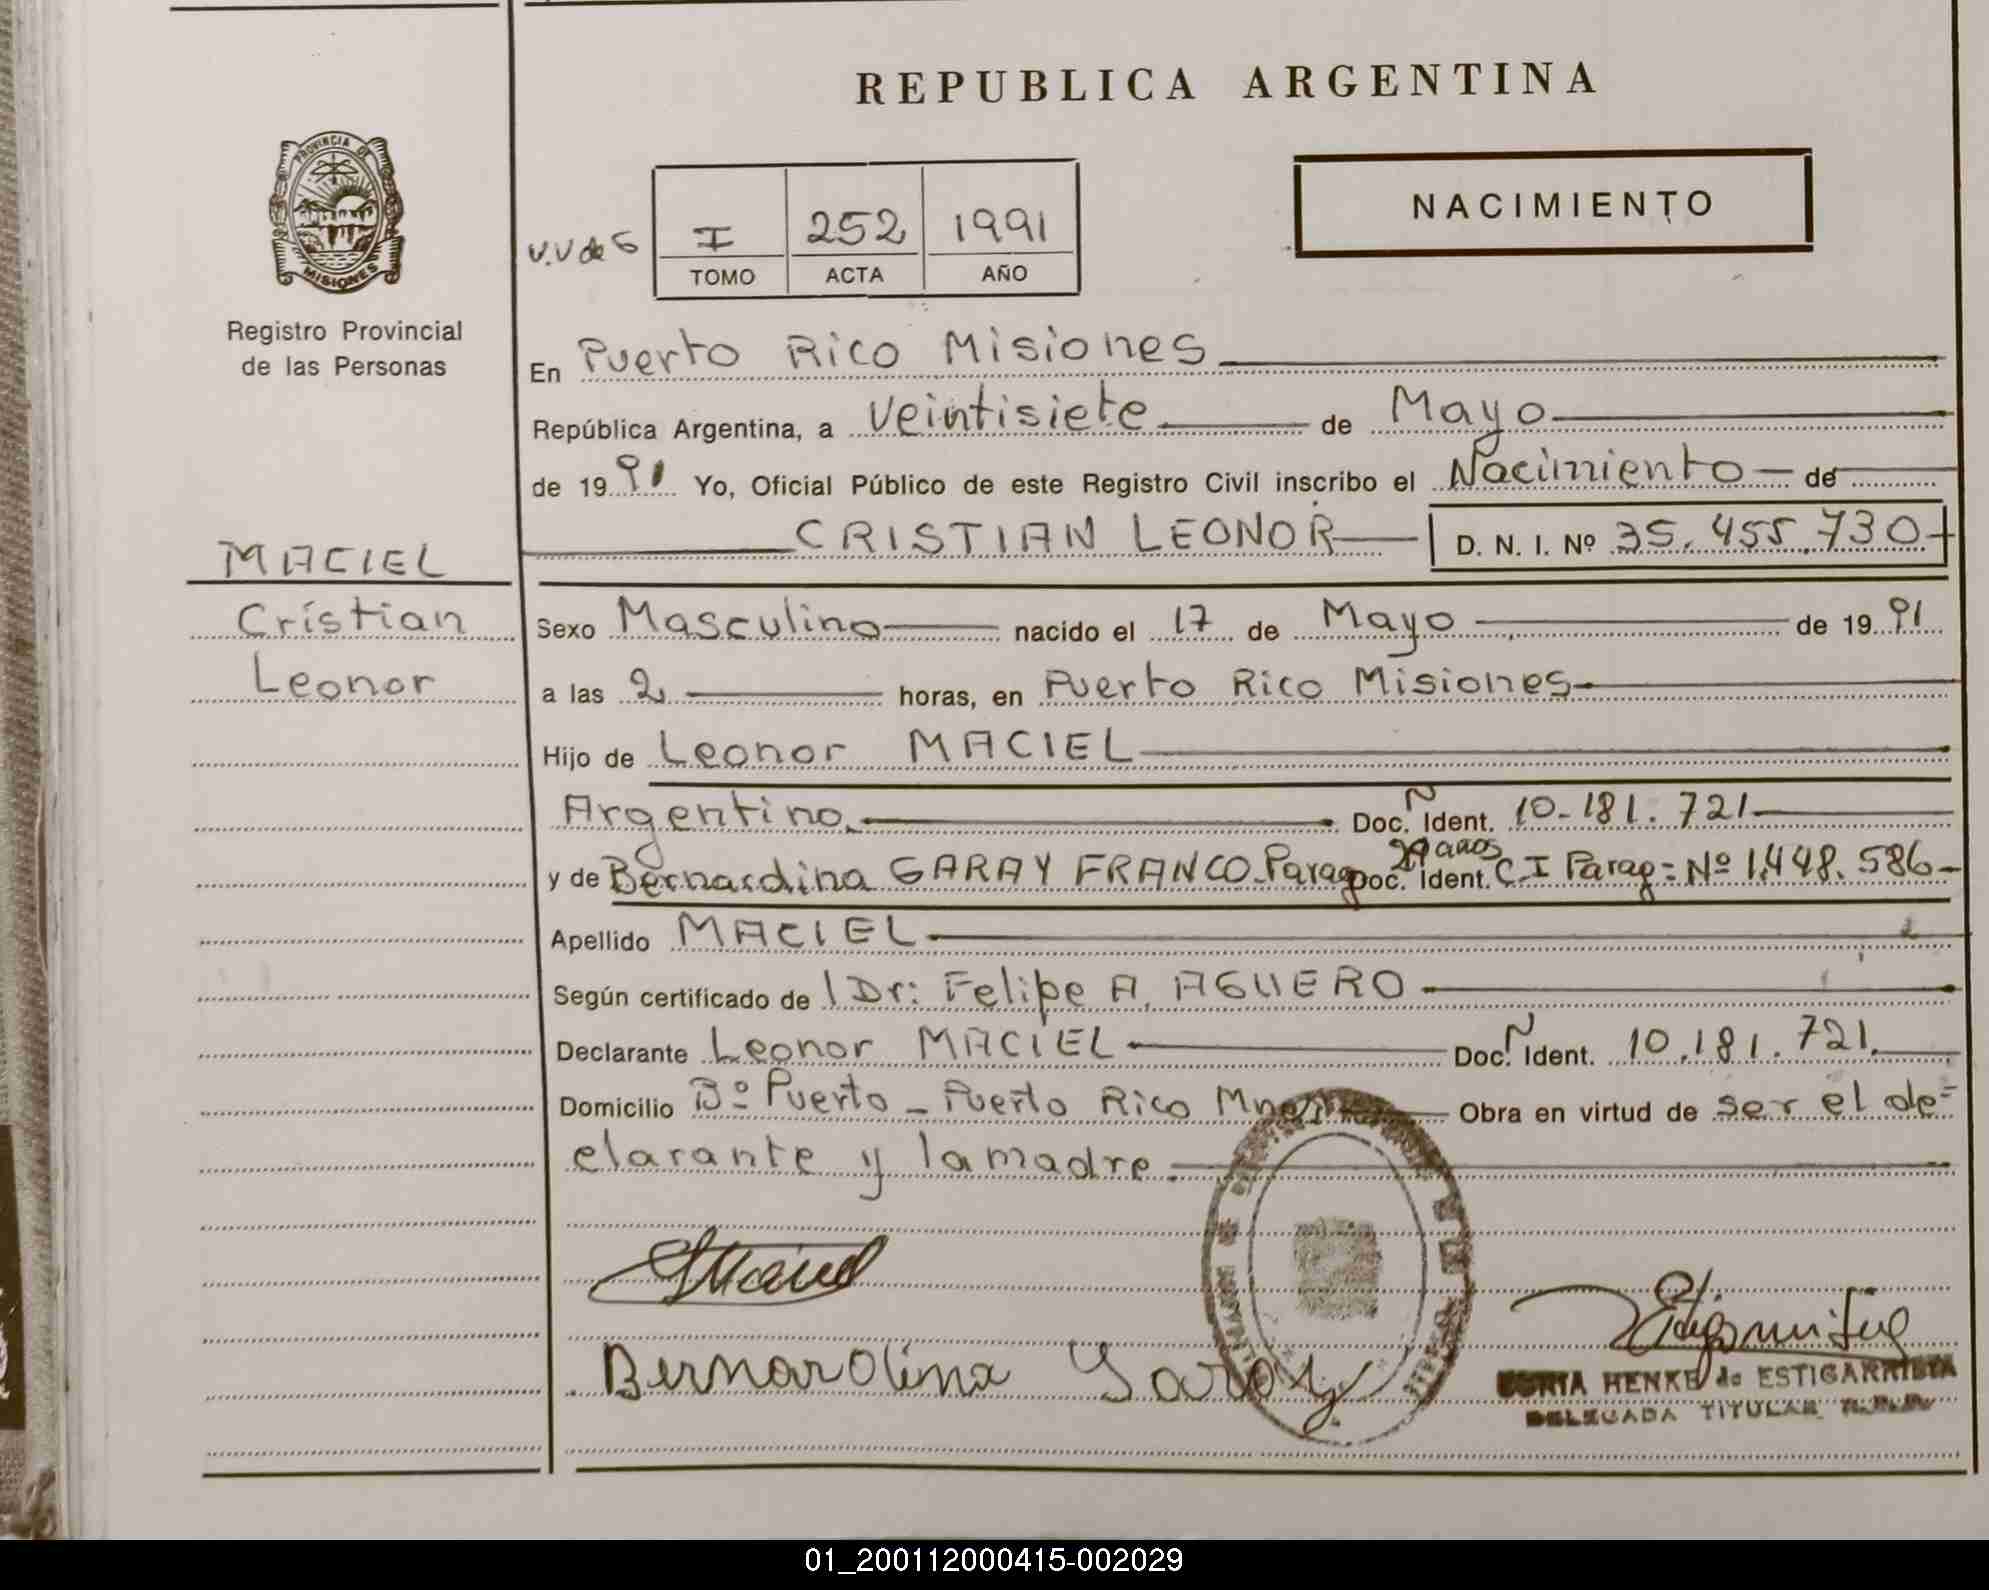 REPUBLICA ARGENTINA
PROVINCIA DE
MISIONES
Registro Provincial
de las Personas
NACIMIENTO
V.V de G
I 252 1991
TOMO ACTA AÑO
En Puerto Rico Misiones
República Argentina, a veintisiete de Mayo
de 1991 Yo, Oficial Público de este Registro Civil inscribo el Nacimiento de
CRISTIAN LEONOR D. N. I. Nº 35.455.730
MACIEL
Cristian
Leonor
Sexo Masculino nacido el 17 de Mayo de 1991
a las 2 horas, en Puerto Rico Misiones
Hijo de Leonor MACIEL
Argentino. Doc. Ident. 10-181.721
29 años
y de Bernardina GARAY FRANCO Parag Doc. Ident. C.I Parag: Nº 1.448.586
Apellido MACIEL
Según certificado de Dr: Felipe A. AGUERO
Declarante Leonor MACIEL Doc. Ident. 10.181.721.
Domicilio Bº Puerto - Puerto Rico Mnes Obra en virtud de ser el de=
clarante y la madre
Bernardina Garay
HENKE de ESTIGARRIBIA
DELEGADA TITULAR
01_200112000415-002029